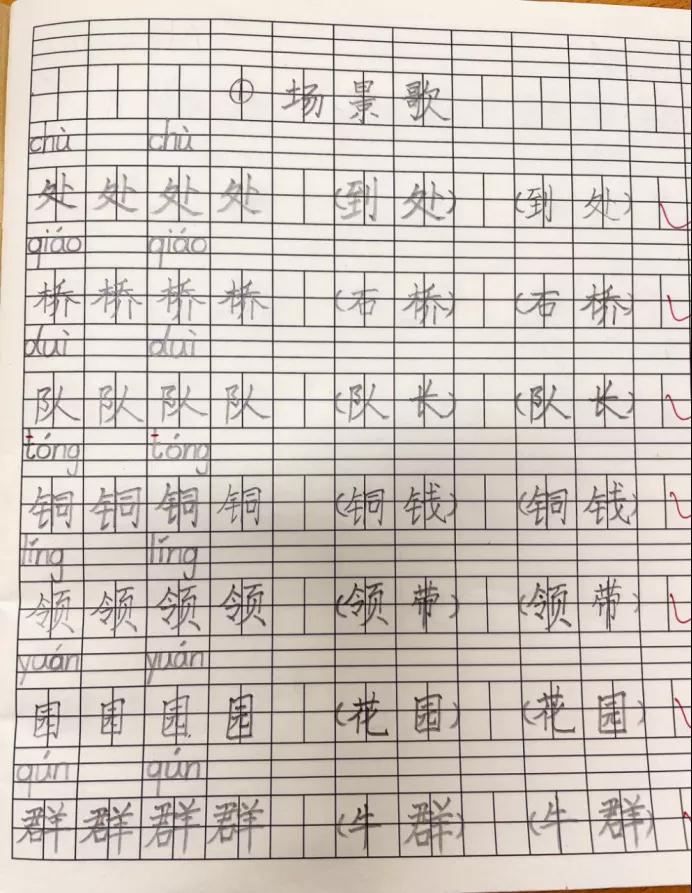 ① 场景歌
chù chù
处 处 处 处 (到 处) (到 处)
qiáo qiáo
桥 桥 桥 桥 (石 桥) (石 桥)
duì duì
队 队 队 队 (队 长) (队 长)
tóng tóng
铜 铜 铜 铜 (铜 钱) (铜 钱)
lǐng lǐng
领 领 领 领 (领 带) (领 带)
yuán yuán
园 园 园 园 (花 园) (花 园)
qún qún
群 群 群 群 (牛 群) (牛 群)